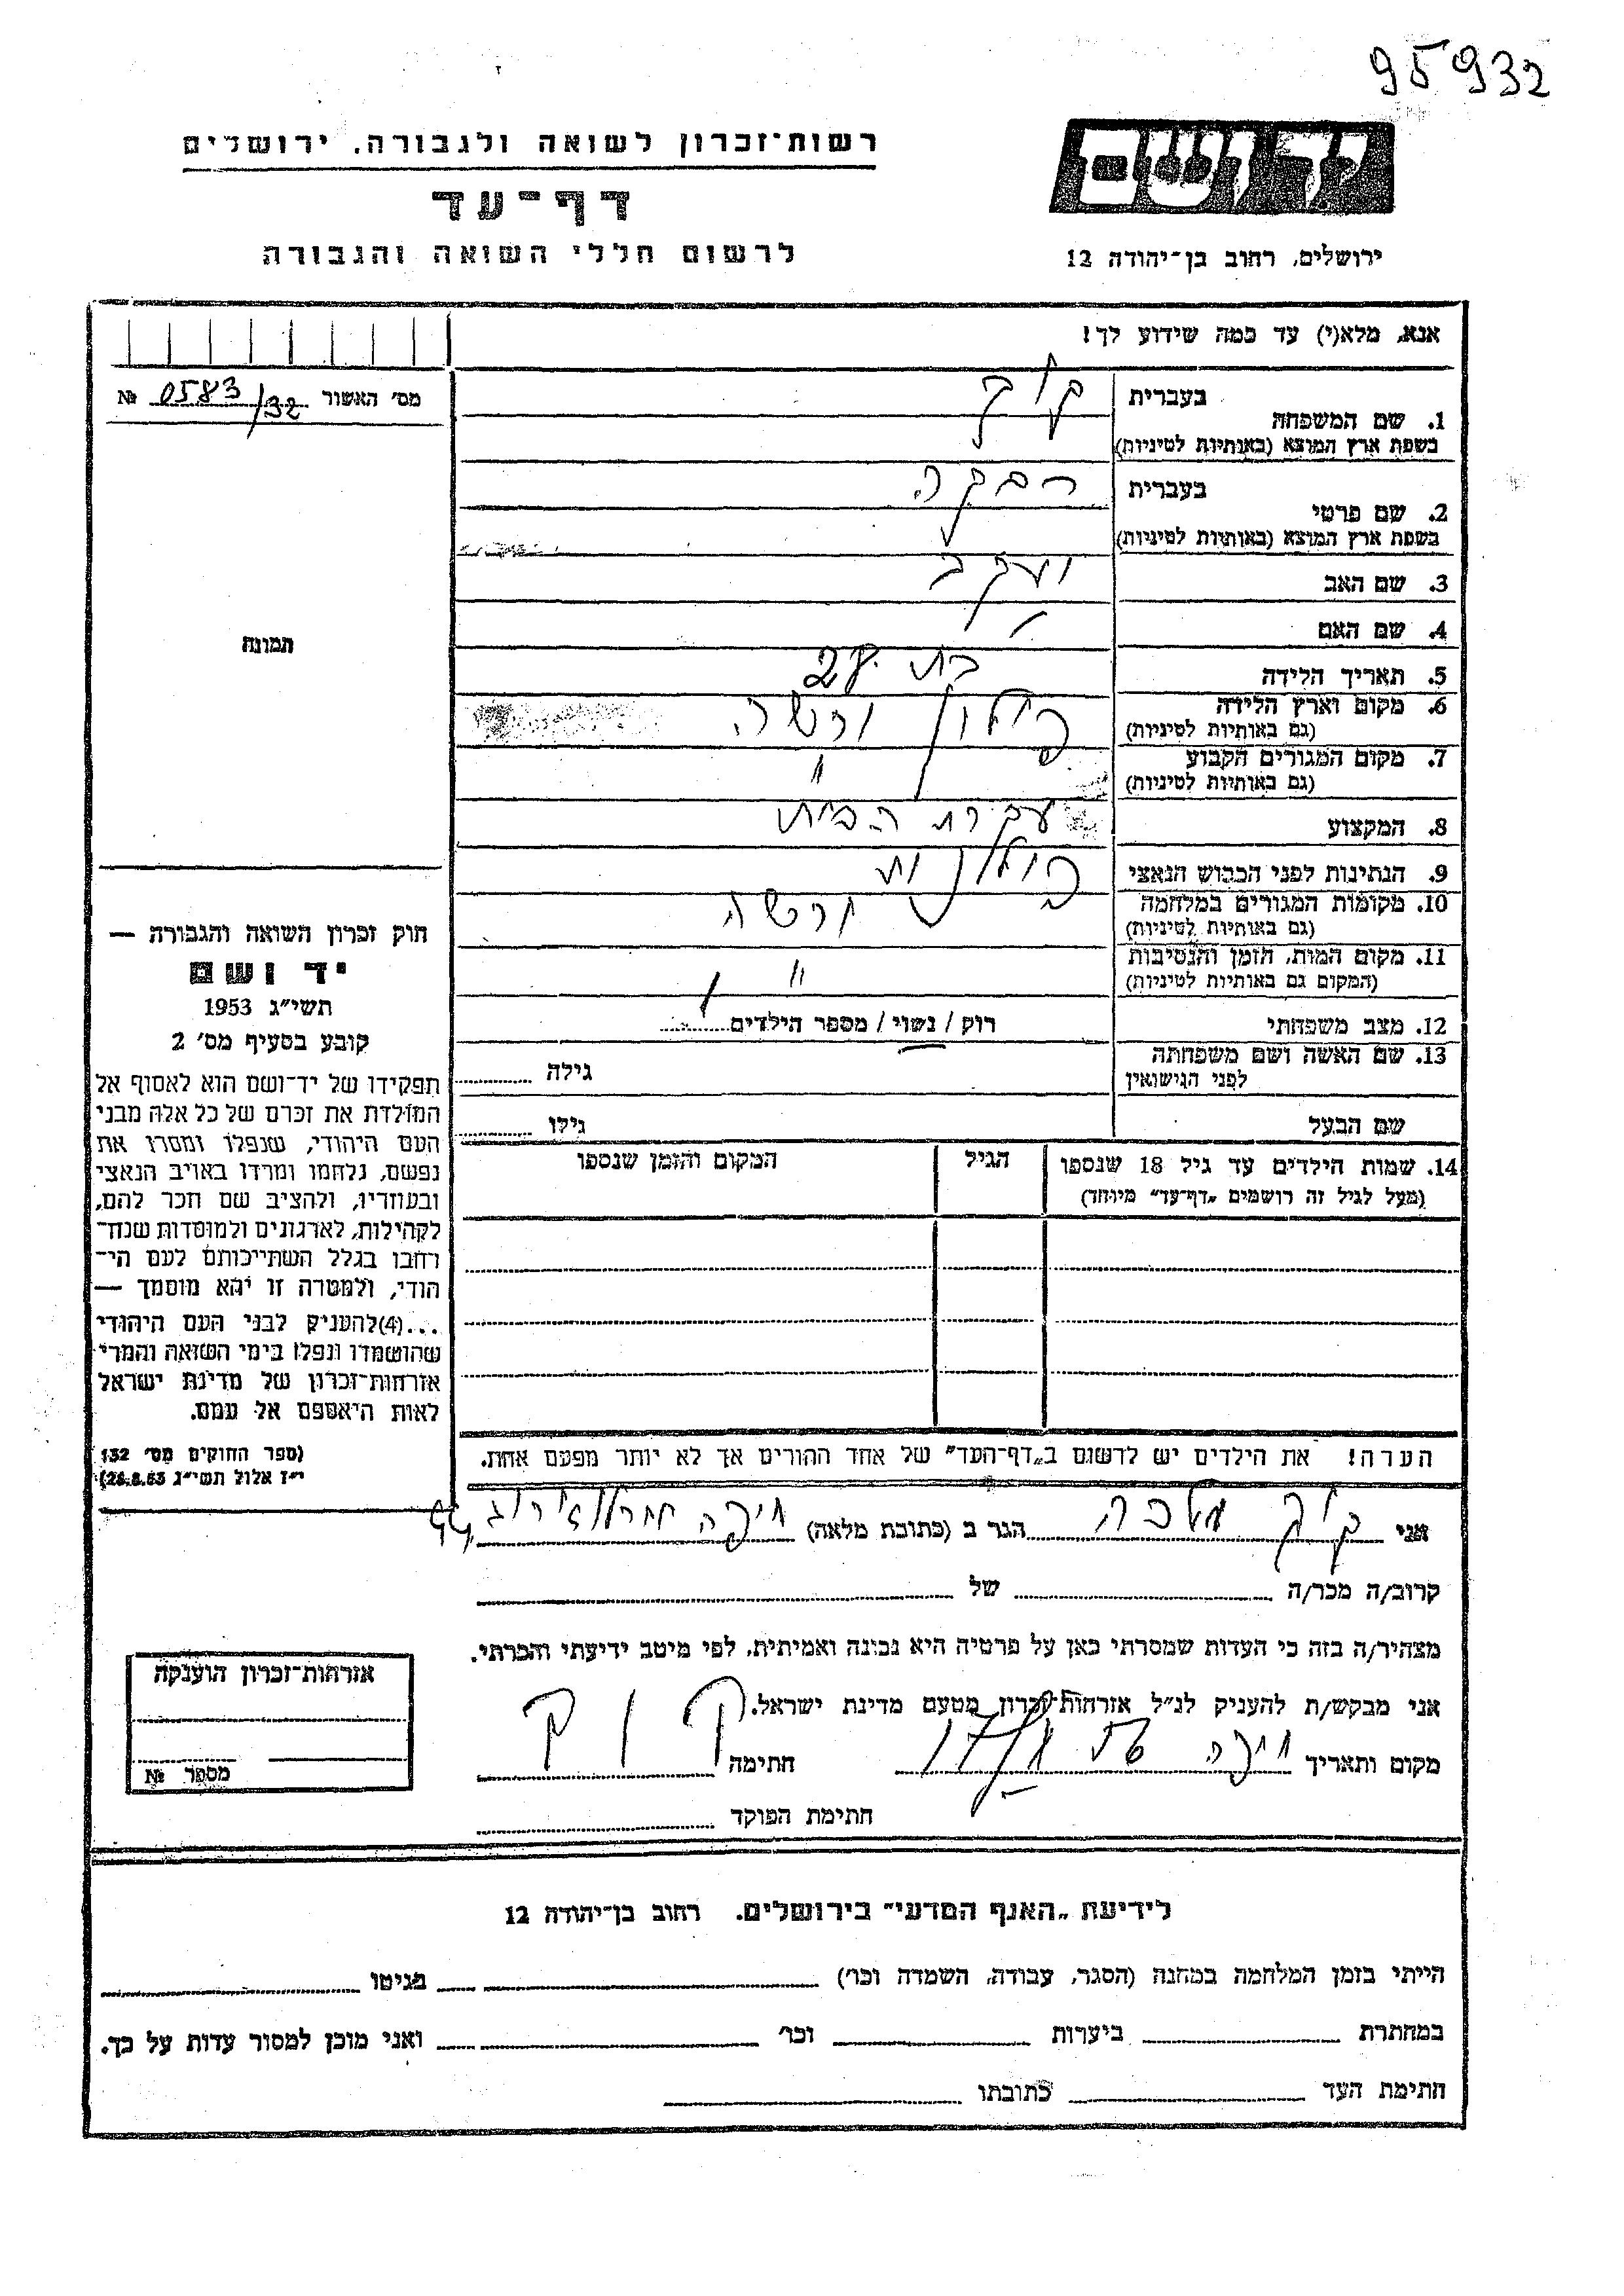 95932
יד ושם
רשות־זכרון לשואה ולגבורה, ירושלים
דף־עד
לרשום חללי השואה והגבורה
ירושלים, רחוב בן־יהודה 12
אנא, מלא(י) עד כמה שידוע לך!
מס' האשור 0583/32 №
1. שם המשפחה בעברית קוק
בשפת ארץ המוצא (באותיות לטיניות)
2. שם פרטי בעברית רבקה
בשפת ארץ המוצא (באותיות לטיניות)
3. שם האב יעקב
4. שם האם
5. תאריך הלידה בת 28
6. מקום וארץ הלידה פולין ורשה
(גם באותיות לטיניות)
7. מקום המגורים הקבוע "
(גם באותיות לטיניות)
8. המקצוע עקרת הבית
9. הנתינות לפני הכבוש הנאצי פולנית
10. מקומות המגורים במלחמה ורשה
(גם באותיות לטיניות)
11. מקום המות, הזמן והנסיבות "
(המקום גם באותיות לטיניות)
12. מצב משפחתי רוק / נשוי / מספר הילדים
13. שם האשה ושם משפחתה גילה
לפני הנישואין
שם הבעל גילו
14. שמות הילדים עד גיל 18 שנספו הגיל המקום והזמן שנספו
(מעל לגיל זה רושמים „דף־עד" מיוחד)
הערה! את הילדים יש לרשום ב„דף־העד" של אחד ההורים אך לא יותר מפעם אחת.
תמונה
חוק זכרון השואה והגבורה —
יד ושם
תשי"ג 1953
קובע בסעיף מס' 2
תפקידו של יד־ושם הוא לאסוף אל
המולדת את זכרם של כל אלה מבני
העם היהודי, שנפלו ומסרו את
נפשם, נלחמו ומרדו באויב הנאצי
ובעוזריו, ולהציב שם וזכר להם,
לקהילות, לארגונים ולמוסדות שנח־
רבו בגלל השתייכותם לעם הי־
הודי, ולמטרה זו יהא מוסמך —
...(4) להעניק לבני העם היהודי
שהושמדו ונפלו בימי השואה והמרי
אזרחות־זכרון של מדינת ישראל
לאות היאספם אל עמם.
(ספר החוקים מס' 132
י"ז אלול תשי"ג 28.8.53)
אני קוק מלכה הגר ב (כתובת מלאה) חיפה 44
קרוב/ה מכר/ה של
מצהיר/ה בזה כי העדות שמסרתי כאן על פרטיה היא נכונה ואמיתית, לפי מיטב ידיעתי והכרתי.
אני מבקש/ת להעניק לנ"ל אזרחות־זכרון מטעם מדינת ישראל.
מקום ותאריך חיפה חתימה קוק
חתימת הפוקד
אזרחות־זכרון הוענקה
מספר №
לידיעת „האגף המדעי" בירושלים, רחוב בן־יהודה 12
הייתי בזמן המלחמה במחנה (הסגר, עבודה, השמדה וכו') בגיטו
במחתרת ביערות וכו' ואני מוכן למסור עדות על כך.
חתימת העד כתובתו